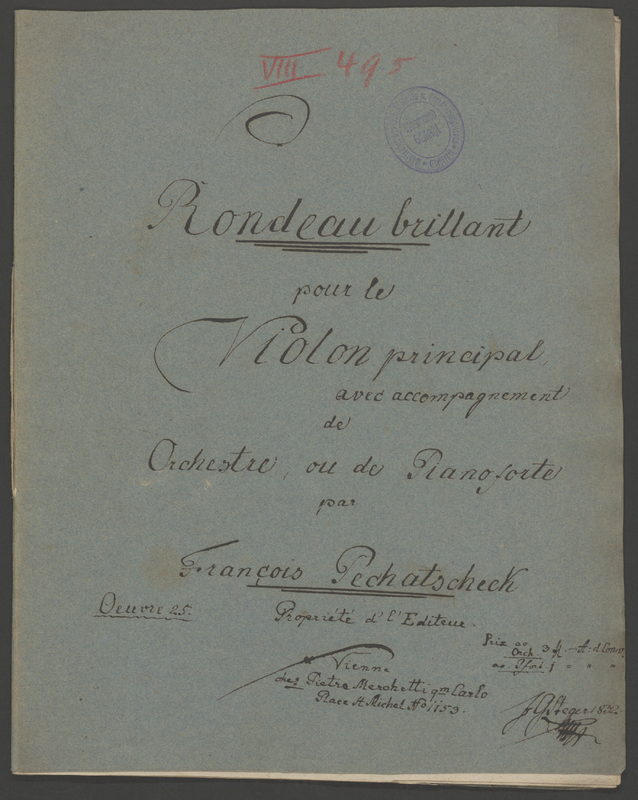 VIII 495
Rondeau brillant
pour le
Violon principal,
avec accompagnement
de
Orchestre, ou de Pianoforte
par
François Pechatscheck
Oeuvre 25.
Propriété d' l'Editeur.
Prix av Orch 3 fl.
av. Pfort 1
Vienne
chez Pietro Mechetti qm Carlo
Place St Michel No 1153.